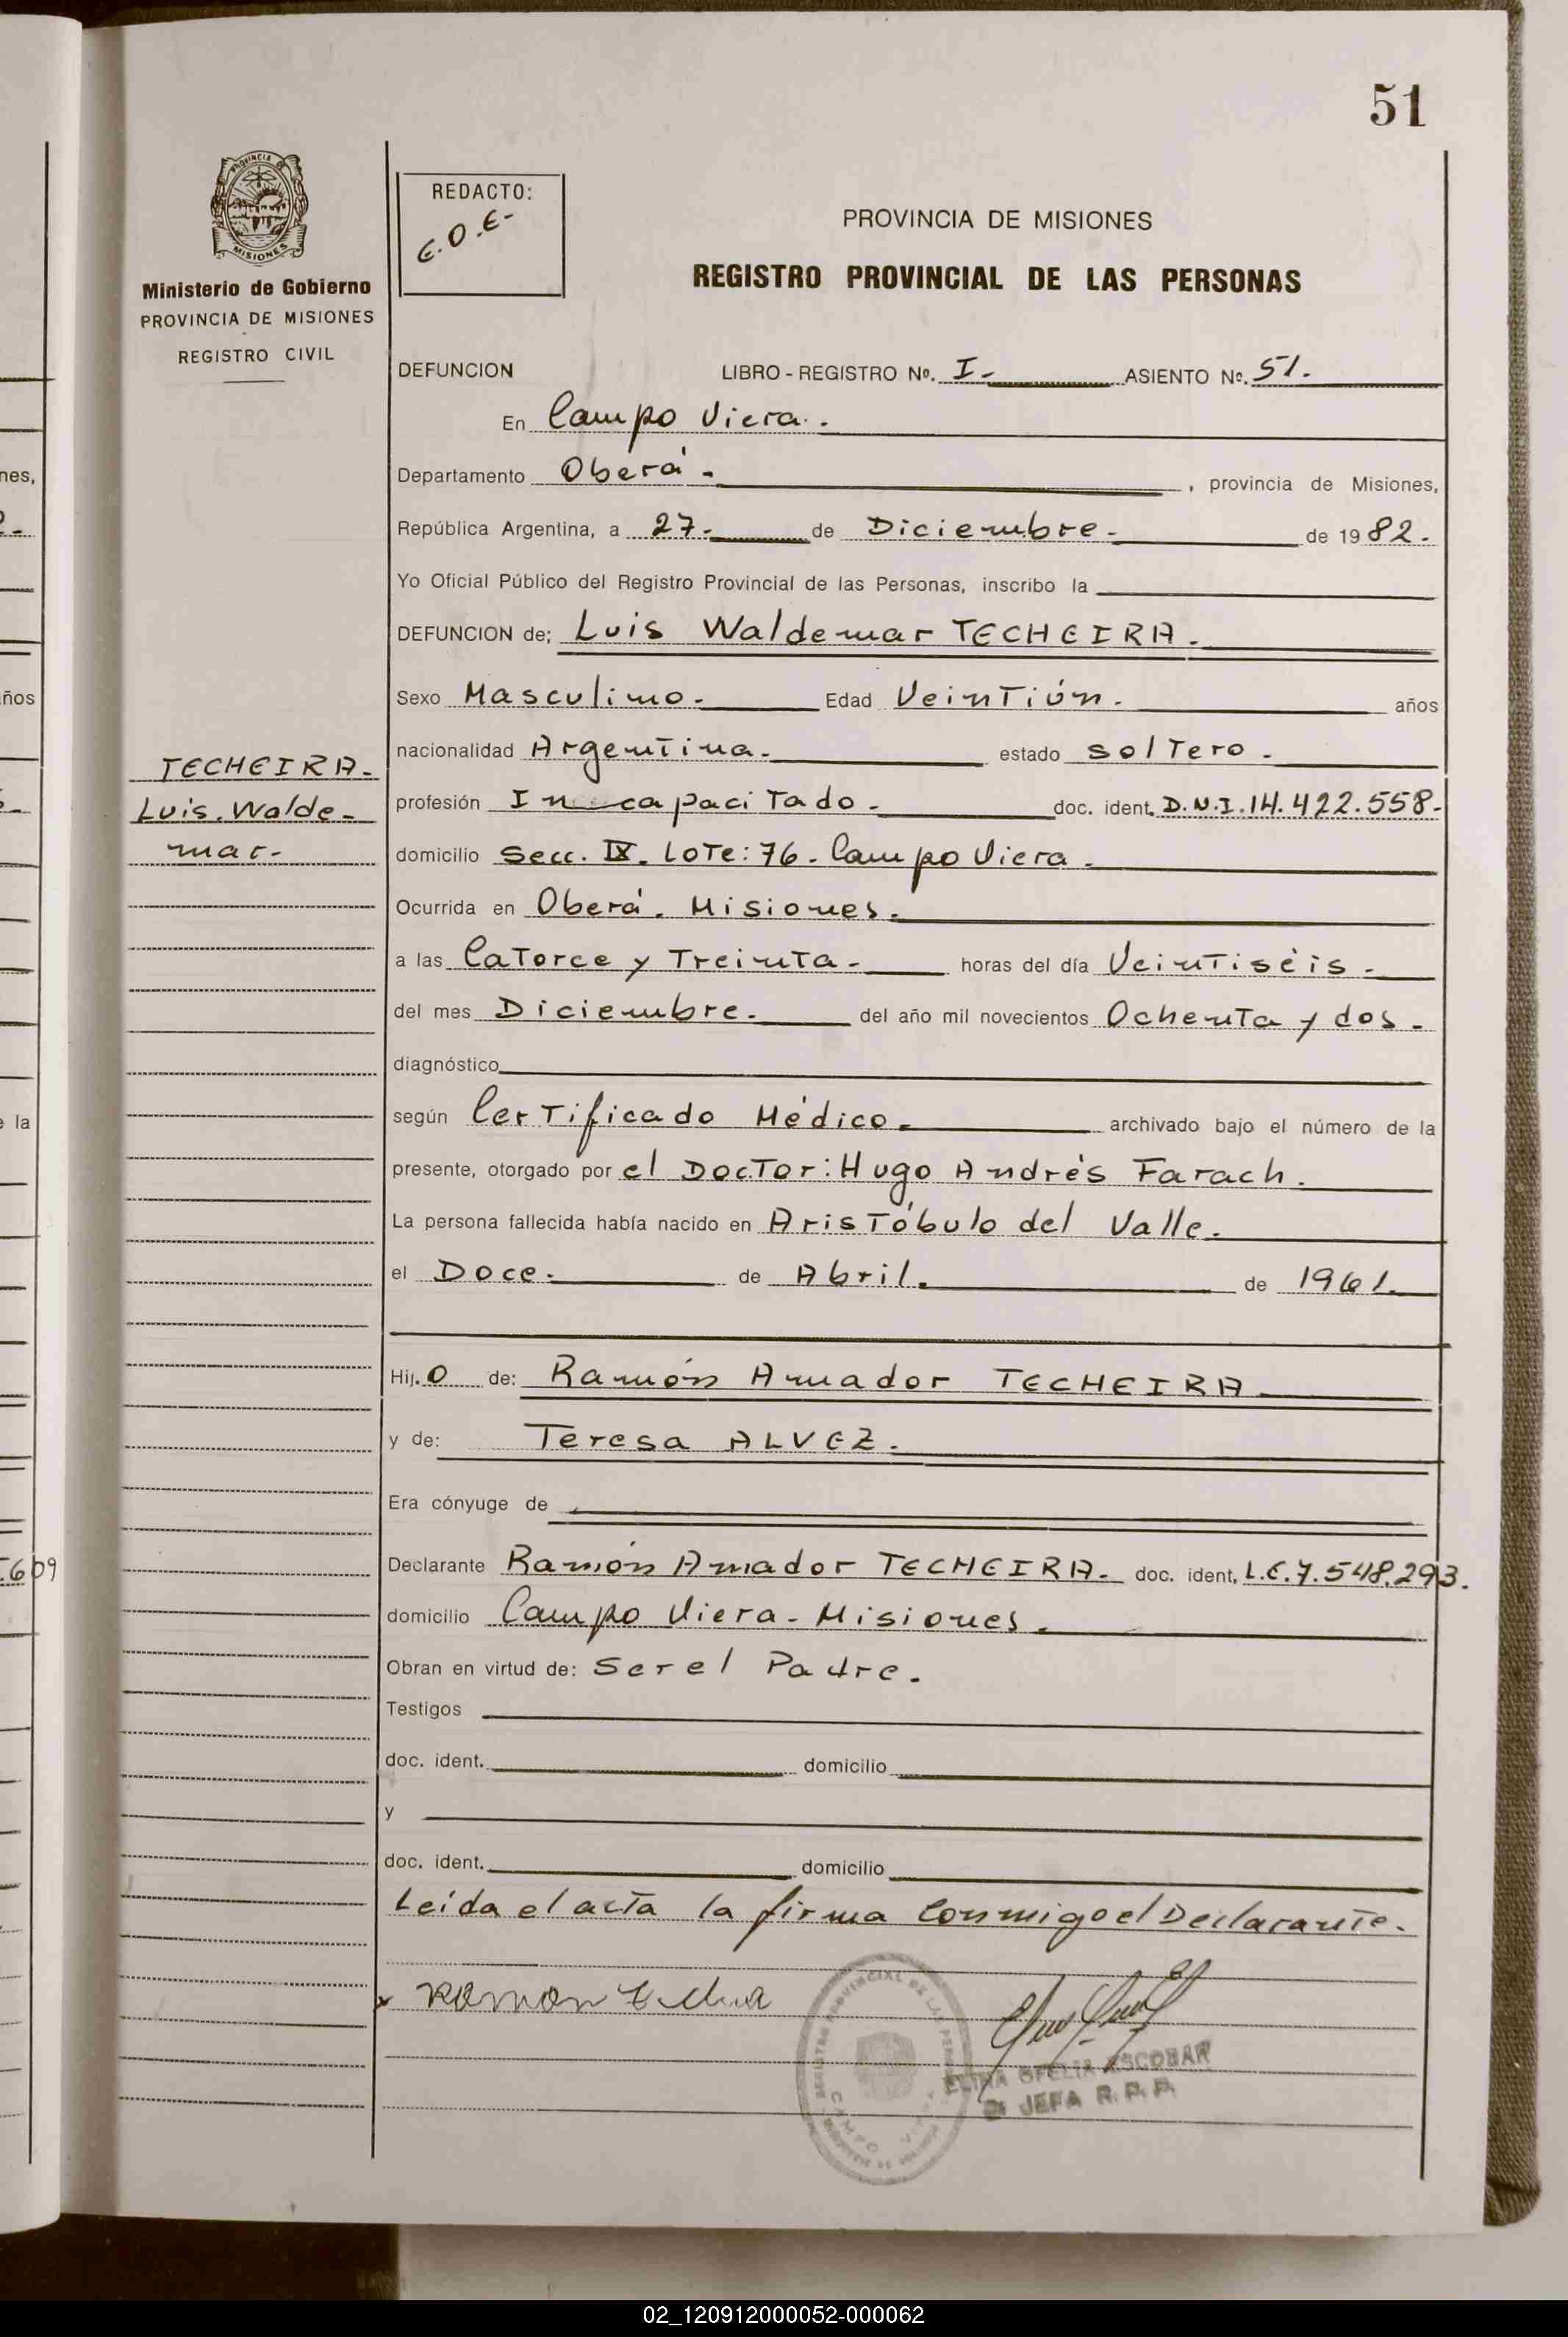 51
PROVINCIA DE
MISIONES
Ministerio de Gobierno
PROVINCIA DE MISIONES
REGISTRO CIVIL
TECHEIRA.-
Luis. Walde-
mar.-
REDACTO:
E.O.E-
PROVINCIA DE MISIONES
REGISTRO PROVINCIAL DE LAS PERSONAS
DEFUNCION LIBRO - REGISTRO Nº. I.- ASIENTO Nº. 51.
En Campo Viera.
Departamento Oberá.- , provincia de Misiones,
República Argentina, a 27.- de Diciembre.- de 1982.-
Yo Oficial Público del Registro Provincial de las Personas, inscribo la
DEFUNCION de; Luis Waldemar TECHEIRA.-
Sexo Masculino.- Edad Veintiún. años
nacionalidad Argentina.- estado Soltero.-
profesión Incapacitado.- doc. ident. D.N.I.14.422.558.-
domicilio Secc. IX. Lote: 76. Campo Viera.-
Ocurrida en Oberá. Misiones.-
a las Catorce y Treinta.- horas del día Veintiséis.-
del mes Diciembre.- del año mil novecientos Ochenta y dos.-
diagnóstico
según Certificado Médico.- archivado bajo el número de la
presente, otorgado por el Doctor: Hugo Andrés Farach.
La persona fallecida había nacido en Aristóbulo del Valle.-
el Doce.- de Abril.- de 1961.
Hij.o de: Ramón Amador TECHEIRA
y de: Teresa ALVEZ.-
Era cónyuge de
Declarante Ramón Amador TECHEIRA.- doc. ident. L.E.7.548.293.
domicilio Campo Viera - Misiones.
Obran en virtud de: Ser el Padre.
Testigos
doc. ident. domicilio
y
doc. ident. domicilio
Leída el acta la firma Conmigo el Declarante.
x Ramon
CAMPO VIERA
OFELIA ESCOBAR
JEFA R. P. P.
609
nes,
ños
la
02_120912000052-000062